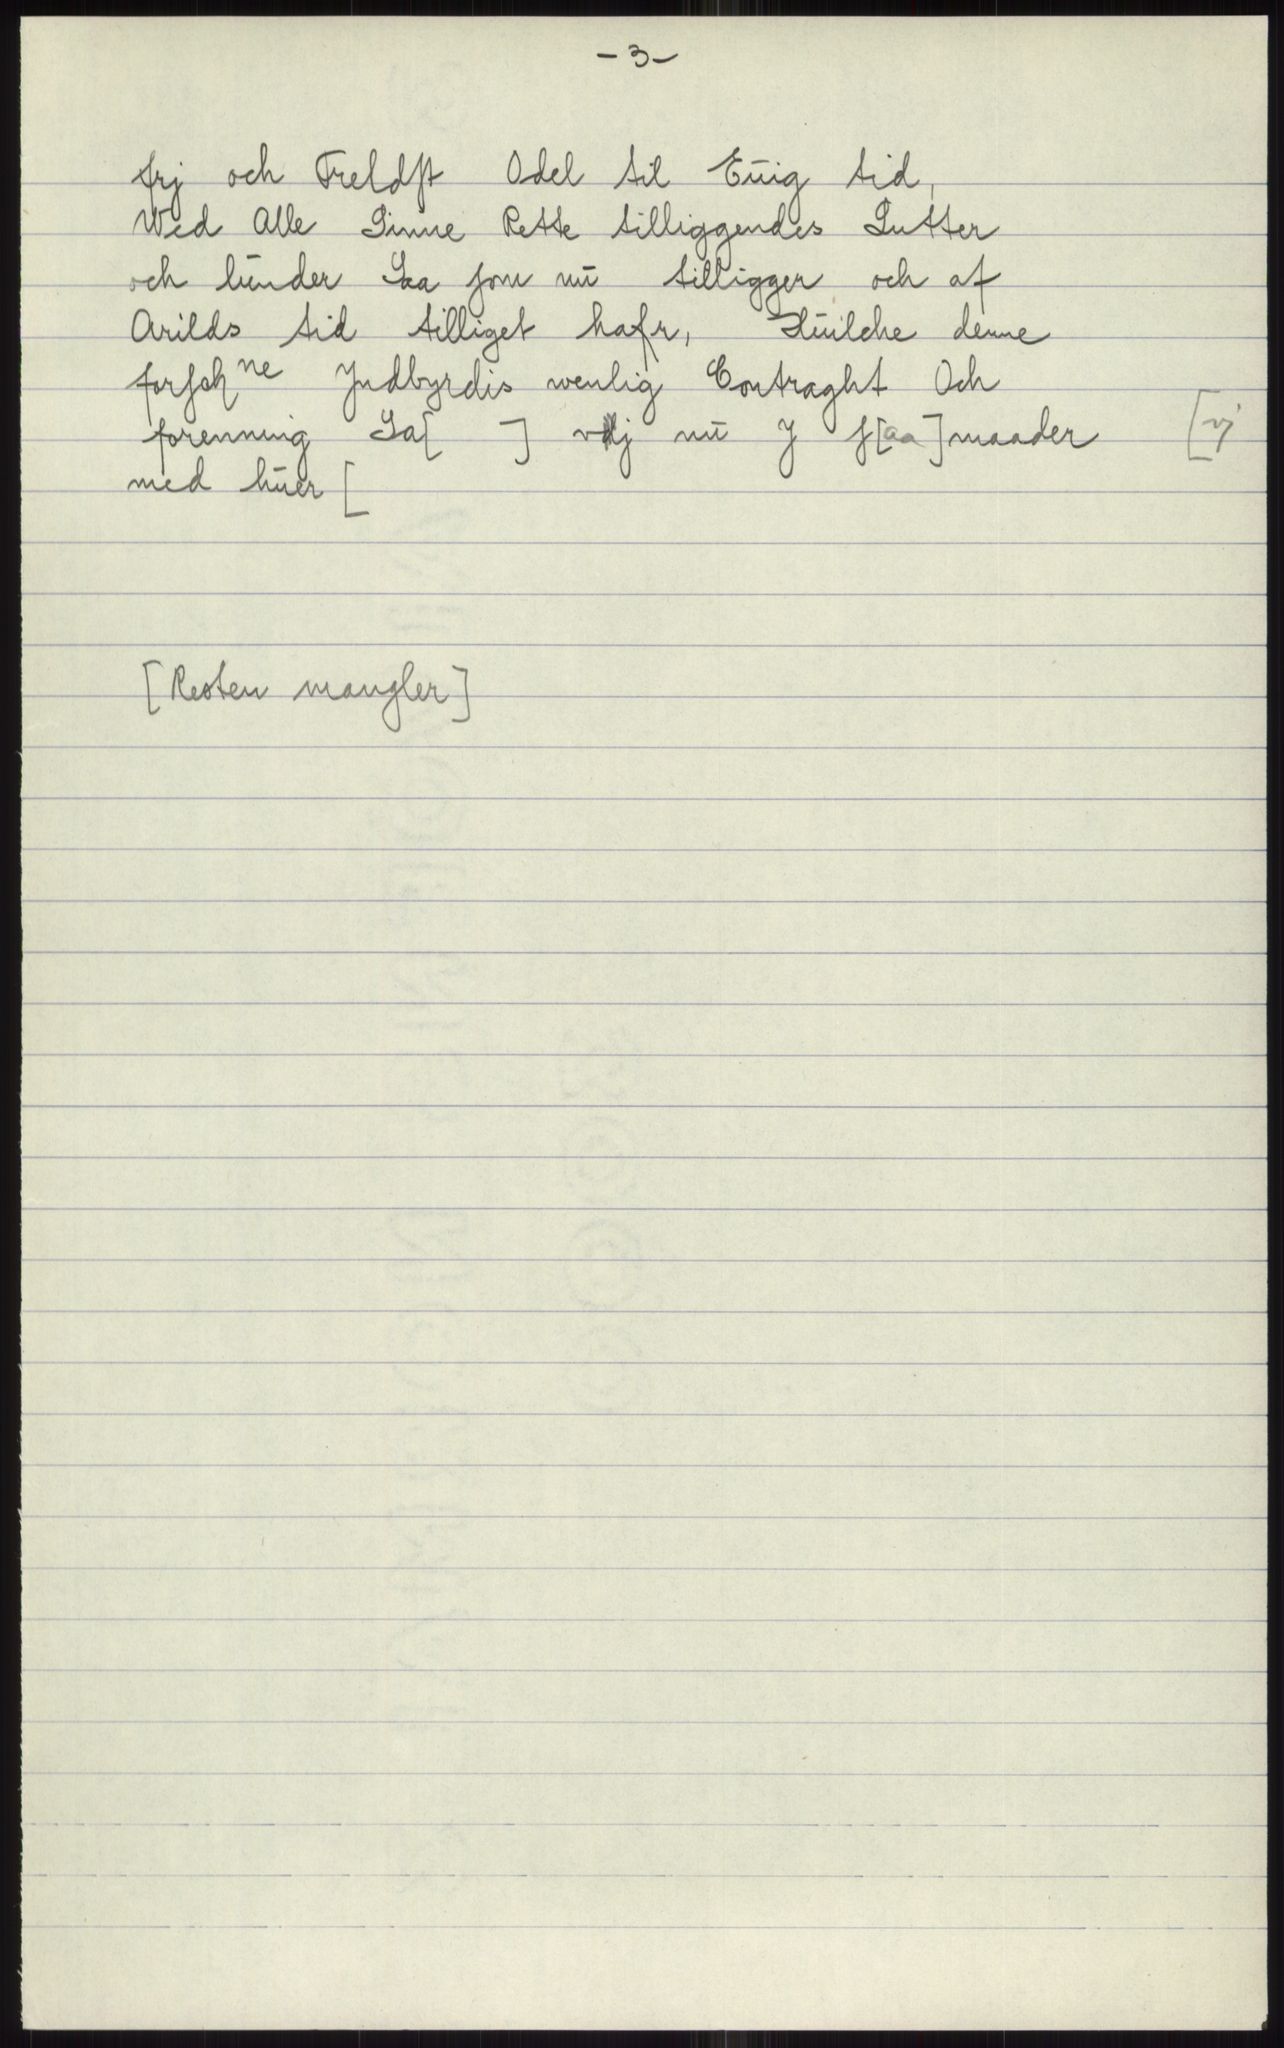 - 3 -
frj och Freldst Odel til Eŭig tid,
Wed Alle Sinne Rette tilliggendes Lutter
och lŭnder Saa som nŭ tilligger och af
Arilds tid tilliget hafr, Hŭilche denne
forsch ne Jndbyrdis wenlig Contraght Och
forenning Sa[ ] vj nŭ J s[aa]maader [vj
med hŭer [
[Resten mangler]